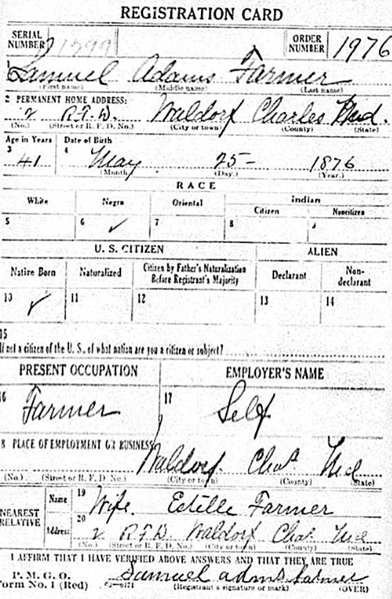 REGISTRATION CARD
SERIAL NUMBER 1299 ORDER NUMBER 1976
1 Samuel Adams Farmer
(First name) (Middle name) (Last name)
2 PERMANENT HOME ADDRESS:
2 R.F.D. Waldorf Charles Md.
(No.) (Street or R. F. D. No.) (City or town) (County) (State)
Age in Years Date of Birth
3 4
41 May 25- 1876
(Month.) (Day.) (Year.)
RACE
White Negro Oriental Indian
Citizen Noncitizen
5 6 ✓ 7 8 9
U. S. CITIZEN ALIEN
Native Born Naturalized Citizen by Father's Naturalization Before Registrant's Majority Declarant Non-declarant
10 ✓ 11 12 13 14
15
If not a citizen of the U. S., of what nation are you a citizen or subject?
PRESENT OCCUPATION EMPLOYER'S NAME
16 Farmer 17 Self
8 PLACE OF EMPLOYMENT OR BUSINESS:
Waldorf Chas Md
(No.) (Street or R. F. D. No.) (City or town) (County) (State)
NEAREST RELATIVE
Name 19 Wife Estille Farmer
Address: 20 2 R.F.D. Waldorf Chas Md
(No.) (Street or R. F. D. No.) (City or town) (County) (State)
I AFFIRM THAT I HAVE VERIFIED ABOVE ANSWERS AND THAT THEY ARE TRUE
P. M. G. O.
Form No. 1 (Red) Samuel adams Farmer
(Registrant's signature or mark) (OVER)